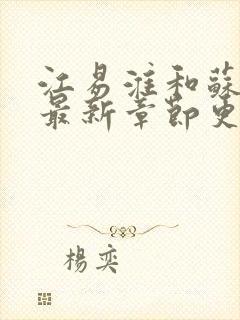 江易淮和蘇
最新章節更
楊奕